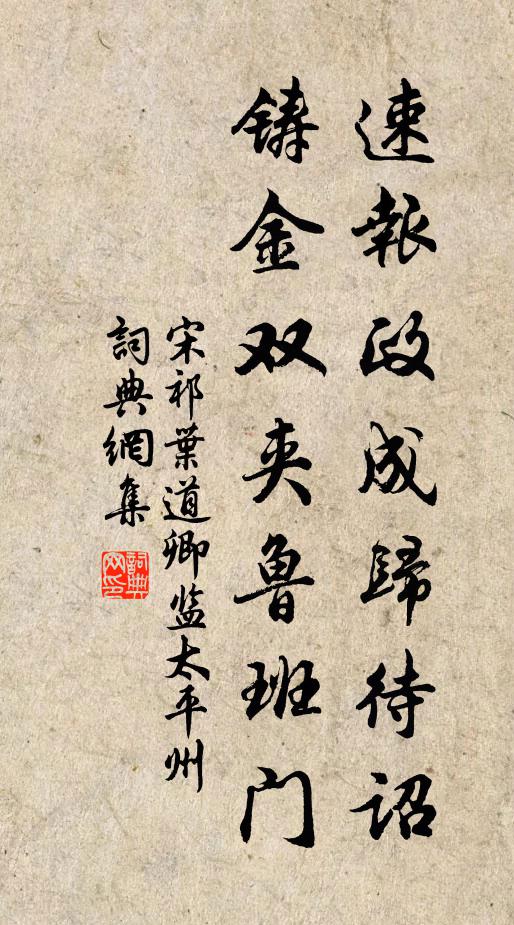 速報政成歸待詔
铸金双夹鲁班门
宋祁葉道卿监太平州
詞典網集
詞典网印